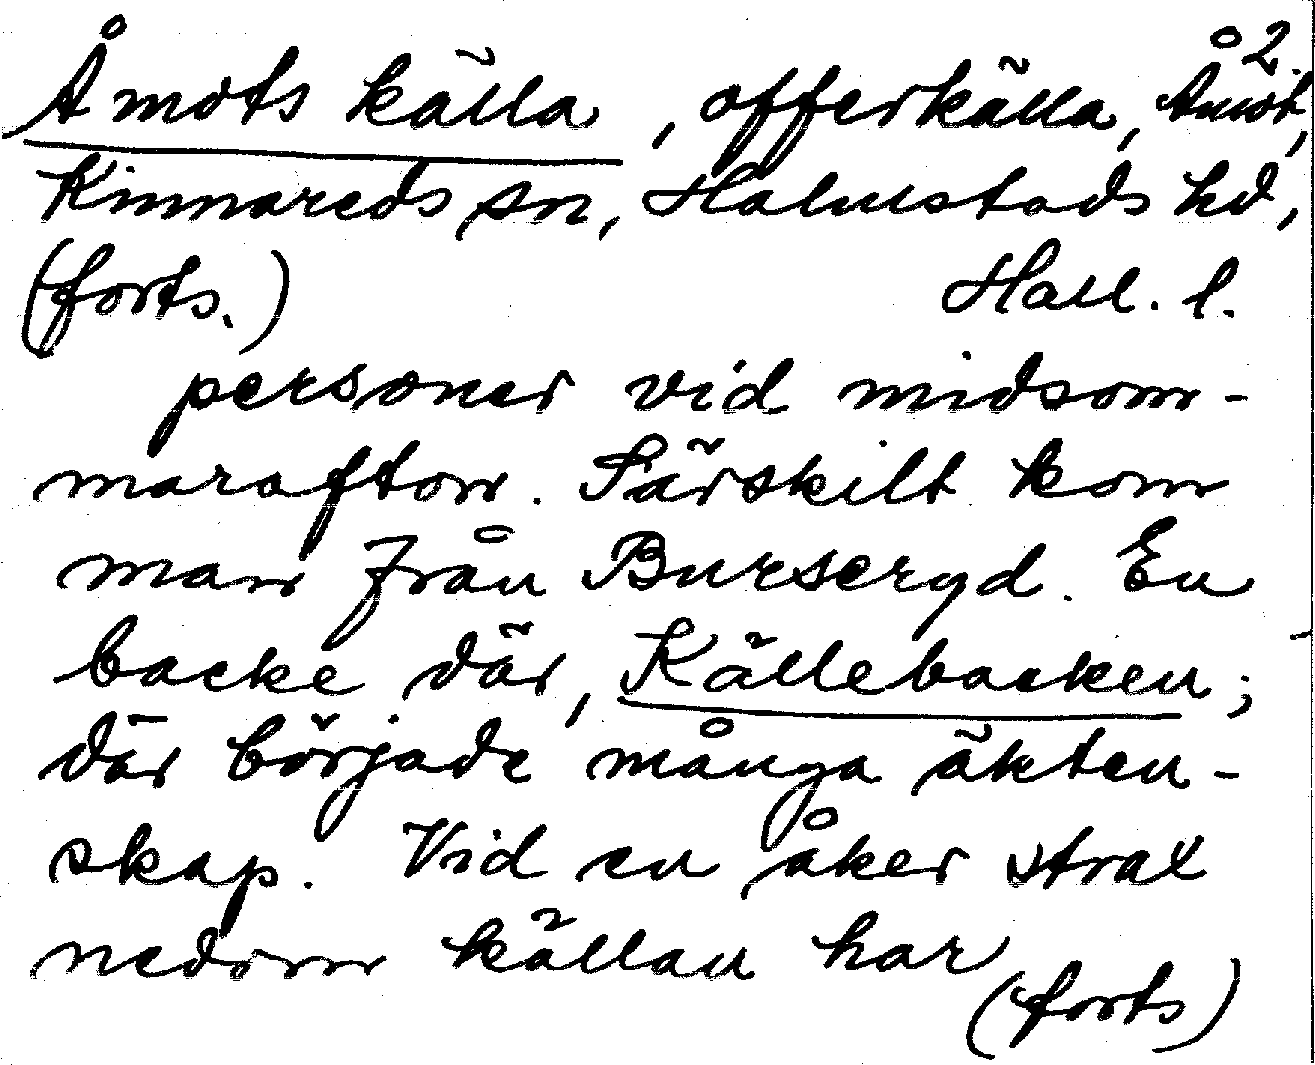 2.
Åmots källa, offerkälla, Åmot,
Kinnareds sn, Halmstads hd,
(forts.) Hall. l.
personer vid midsom-
marafton. Särskilt kom
man från Burseryd. En
backe där, Källebacken;
där började många äkten-
skap. Vid en åker strax
nedom källan har
(forts)